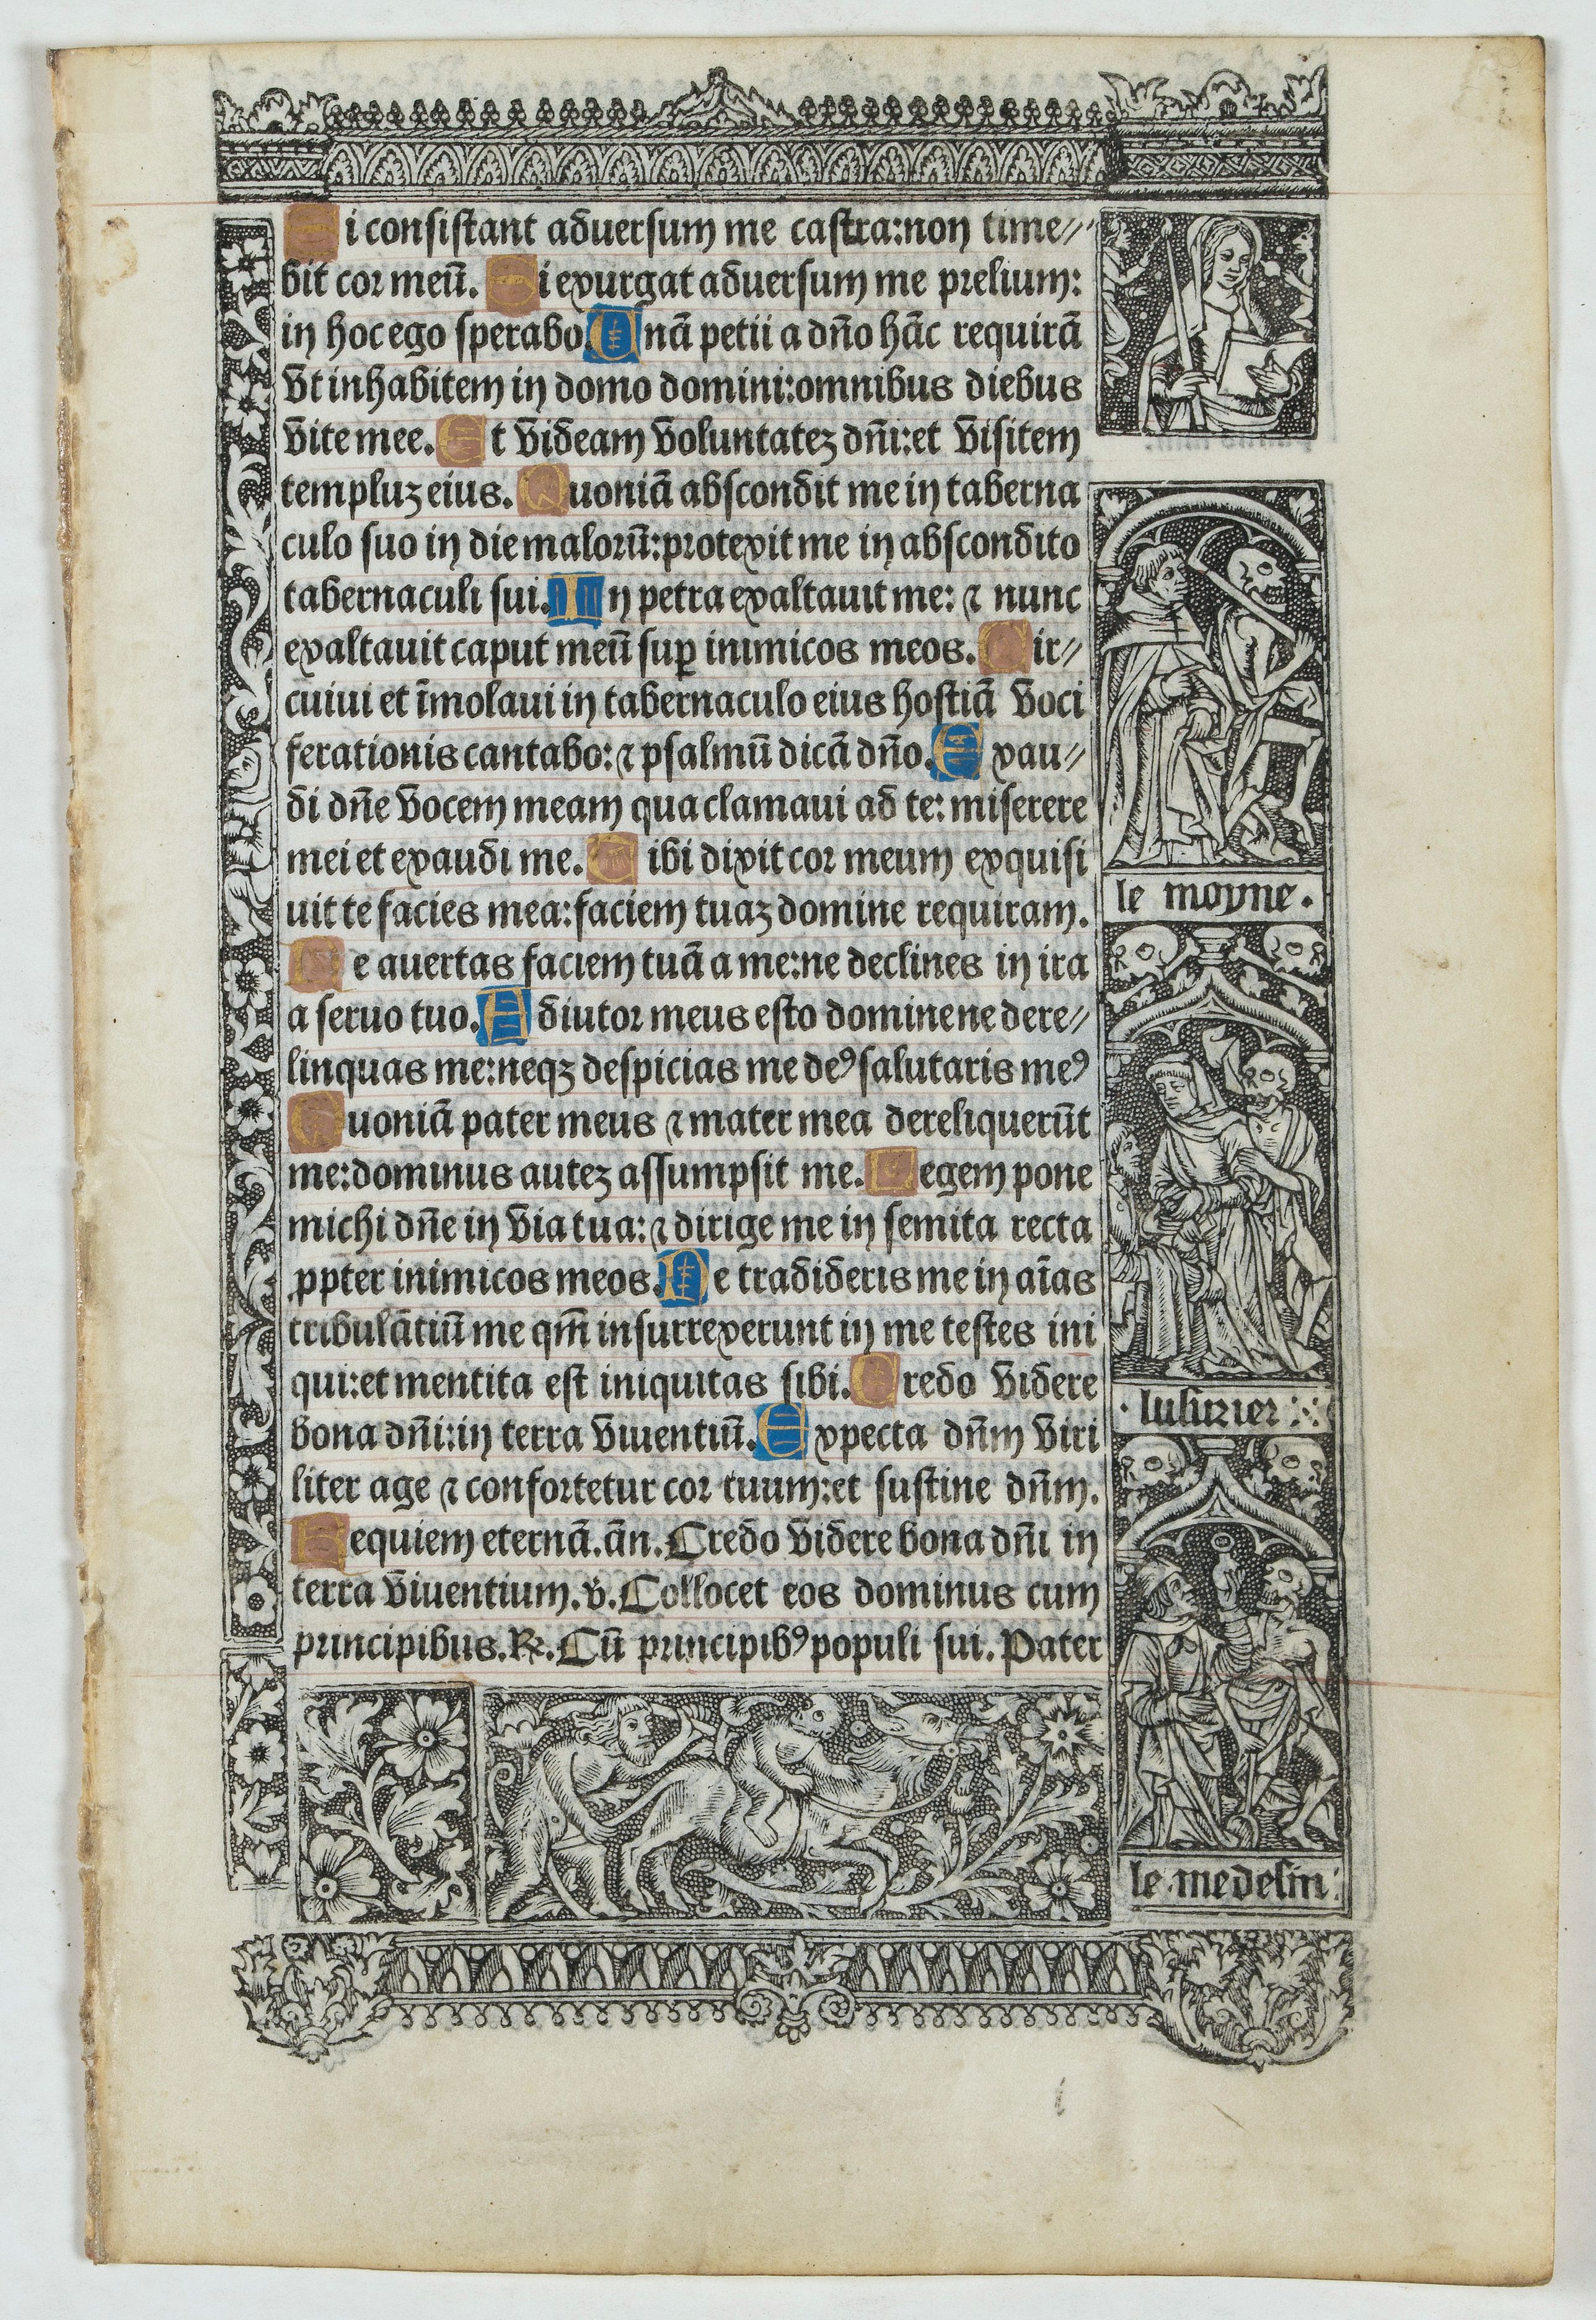 Si consistant aduersum me castra:non time//
bit cor meū. Si exurgat aduersum me prelium:
in hoc ego sperabo. Unā petii a dño hāc requirā
vt inhabitem in domo domini:omnibus diebus
vite mee. Et videam voluntatez dñi:et visitem
templuz eius. Quoniā abscondit me in taberna
culo suo in die malorū:protexit me in abscondito
tabernaculi sui. In petra exaltauit me: ⁊ nunc
exaltauit caput meū sup̄ inimicos meos. Cir//
cuiui et īmolaui in tabernaculo eius hostiā voci
ferationis cantabo: ⁊ psalmū dicā dño. Exau//
di dñe vocem meam qua clamaui ad te: miserere
mei et exaudi me. Tibi dixit cor meum exquisi
uit te facies mea:faciem tuaz domine requiram.
Ne auertas faciem tuā a me:ne declines in ira
a seruo tuo. Adiutor meus esto domine ne dere//
linquas me:neqz despicias me deꝰ salutaris meꝰ
Quoniā pater meus ⁊ mater mea dereliquerūt
me:dominus autez assumpsit me. Legem pone
michi dñe in via tua: ⁊ dirige me in semita recta
ꝓpter inimicos meos. Ne tradideris me in aīas
tribulātiū me qm̄ insurrexerunt in me testes ini
qui:et mentita est iniquitas sibi. Credo videre
bona dñi:in terra viuentiū. Expecta dñm viri
liter age ⁊ confortetur cor tuum:et sustine dñm.
Requiem eternā.ān. Credo videre bona dñi in
terra viuentium.v̄. Collocet eos dominus cum
principibus.℞. Cū principibꝰ populi sui. Pater
le moyne.
lusurier
le medesin